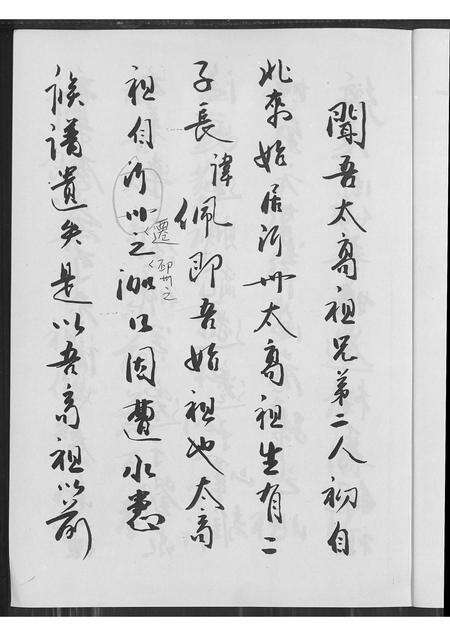 聞吾太高祖兄弟二人初自
北來始居沂州太高祖生有二
子長諱佩即吾始祖也太高
祖自沂州之泇口因遭水患
遷邳州之
族譜遺失是以吾高祖以前